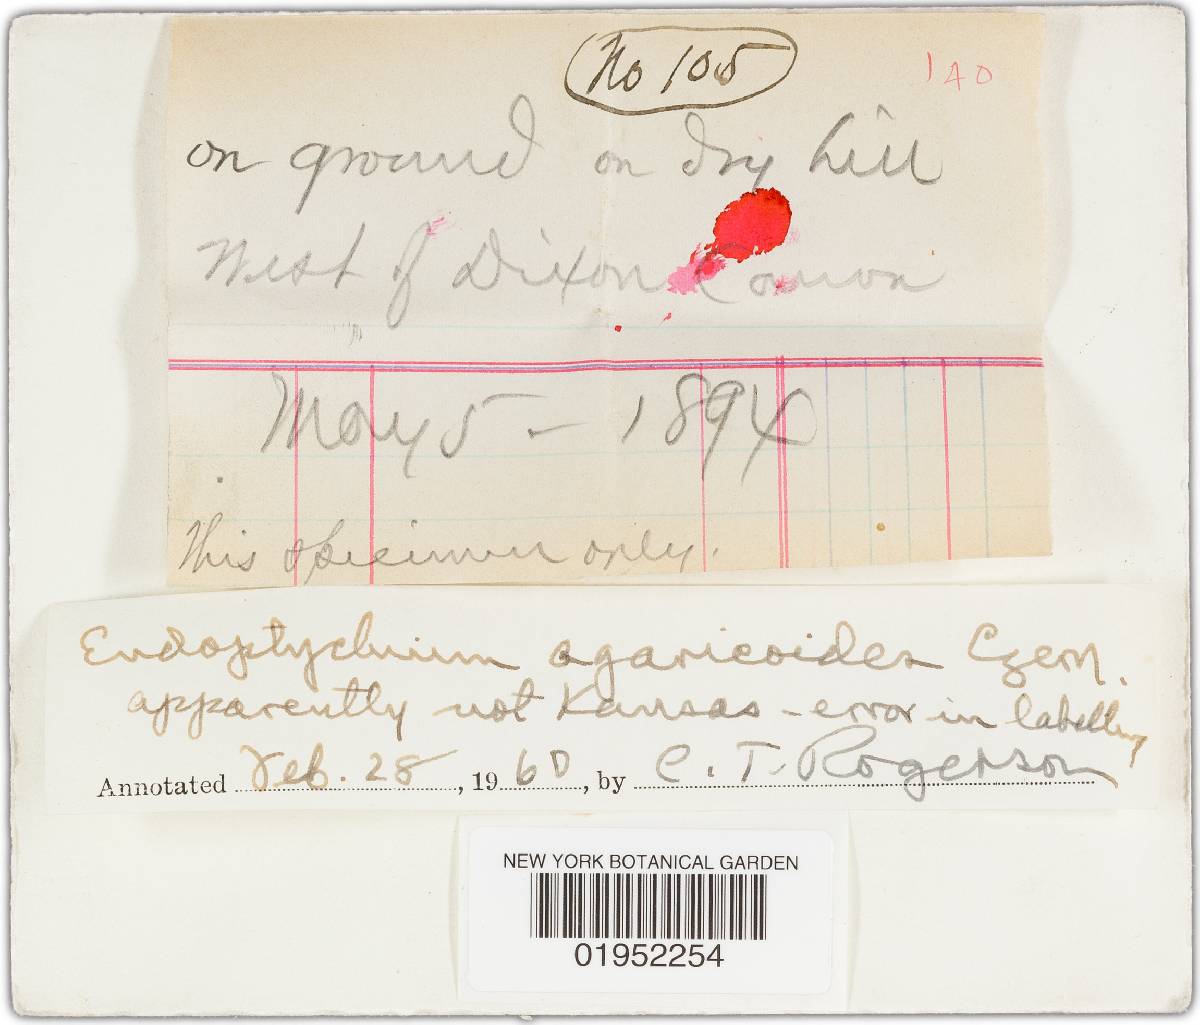 No 105
140
on ground on dry hill
West of Dixon Canon
May 5 - 1894
This specimen only.
Endoptychum agaricoides Czern.
apparently not Kansas - error in labelling
Annotated Feb. 28, 1960, by C. T. Rogerson
NEW YORK BOTANICAL GARDEN
01952254